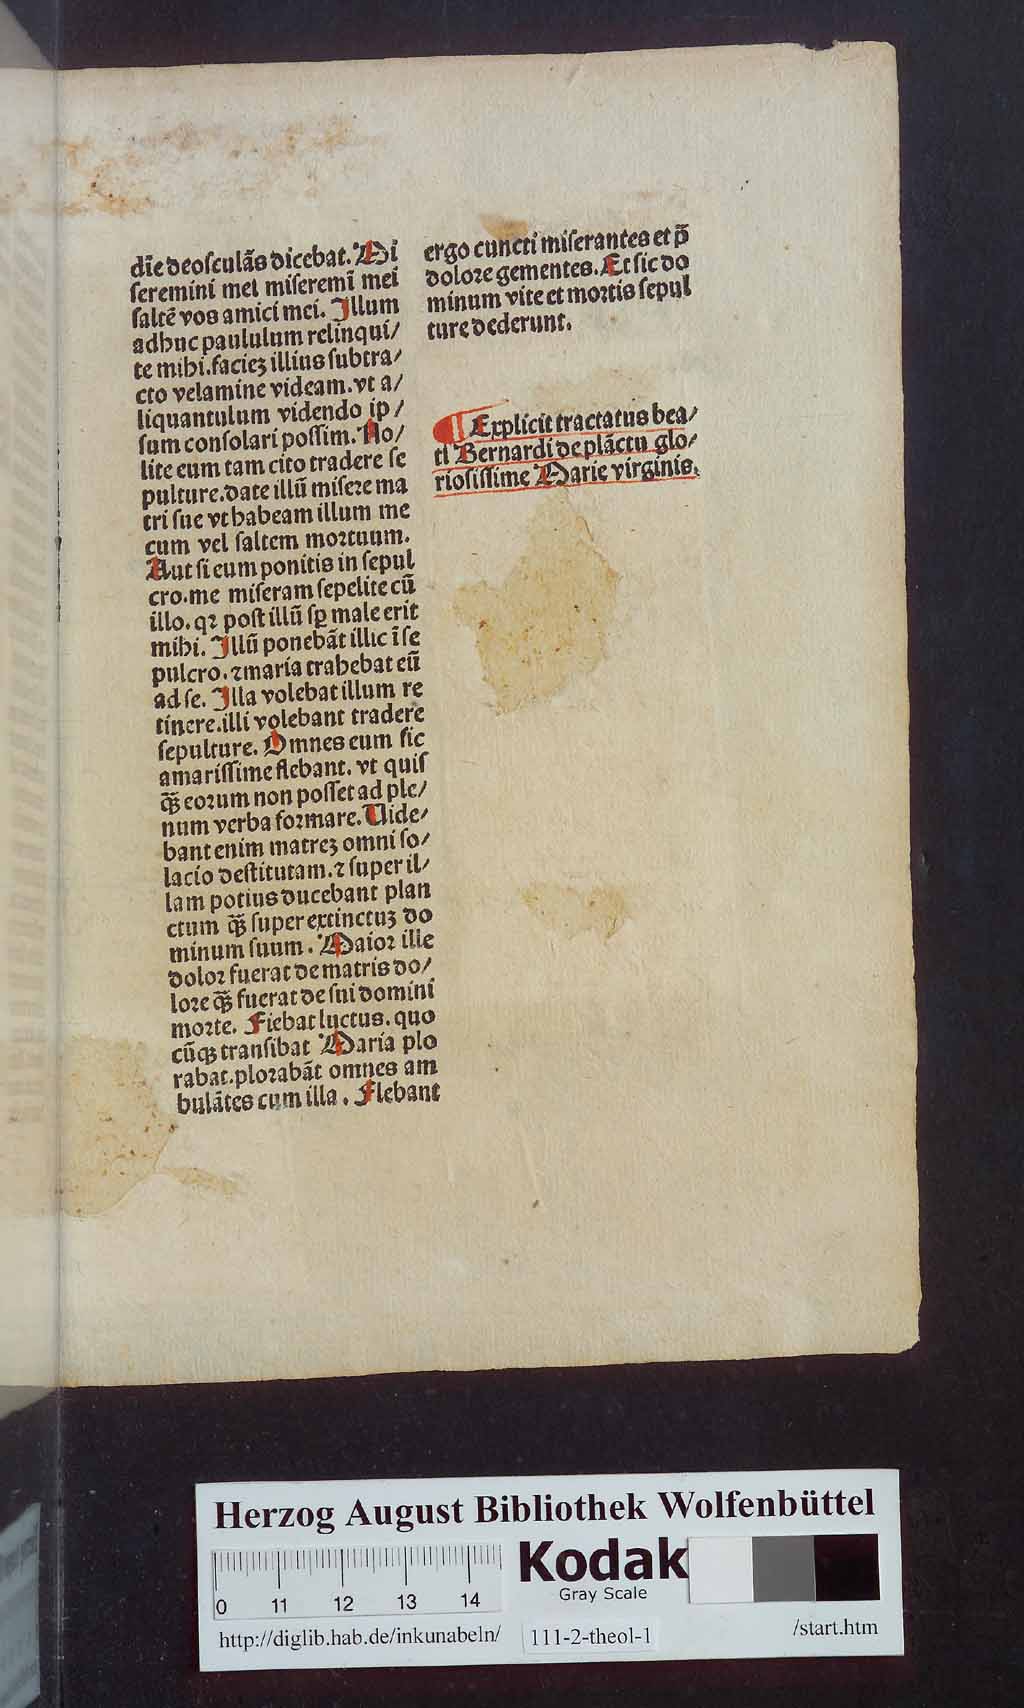 dīe deosculās dicebat. Mi
seremini mei miseremī mei
saltē vos amici mei. Illum
adhuc paululum relinqui/
te mihi.facieꝫ illius subtra/
cto velamine videam.vt a/
liquantulum videndo ip/
sum consolari possim. No/
lite eum tam cito tradere se
pulture.date illū misere ma
tri sue vt habeam illum me
cum vel saltem mortuum.
Aut si eum ponitis in sepul
cro.me miseram sepelite cū
illo. qꝛ post illū sꝑ male erit
mihi. Illū ponebāt illic ī se
pulcro. ⁊ maria trahebat eū
ad se. Illa volebat illum re
tinere.illi volebant tradere
sepulture. Omnes eum sic
amarissime flebant. vt quis
qꝫ̄ eorum non posset ad ple/
num verba formare. Vide/
bant enim matreꝫ omni so/
lacio destitutam.⁊ super il/
lam potius ducebant plan
ctum qꝫ̄ super extinctuꝫ do
minum suum. Maior ille
dolor fuerat de matris do/
lore qꝫ̄ fuerat de sui domini
morte. Fiebat luctus. quo
cūqꝫ transibat Maria plo
rabat.plorabāt omnes am
bulātes cum illa. Flebant
ergo cuncti miserantes et p̄
dolore gementes. Et sic do
minum vite et mortis sepul
ture dederunt.
¶ Explicit tractatus bea/
ti Bernardi de plāctu glo/
riosissime Marie virginis.
Herzog August Bibliothek Wolfenbüttel
Kodak
Gray Scale
0 11 12 13 14
http://diglib.hab.de/inkunabeln/ 111-2-theol-1 /start.htm